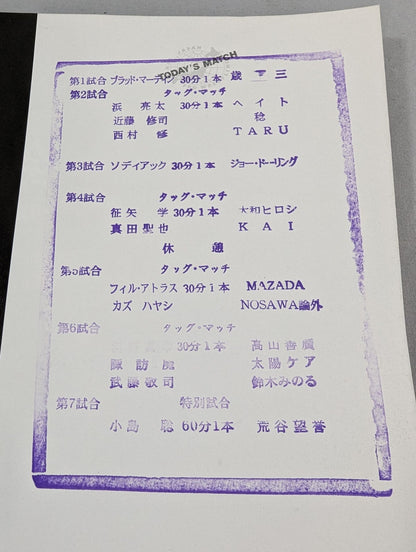 JAPAN
TODAY'S MATCH
第1試合 ブラッド・マーティン 30分1本 歳三
第2試合 タッグ・マッチ
浜 亮太 30分1本 ヘイト
近藤 修司 稔
西村 修 TARU
第3試合 ゾディアック 30分1本 ジョー・ドーリング
第4試合 タッグ・マッチ
征矢 学 30分1本 大和ヒロシ
真田聖也 KAI
休憩
第5試合 タッグ・マッチ
フィル・アトラス 30分1本 MAZADA
カズ ハヤシ NOSAWA論外
第6試合 タッグ・マッチ
30分1本 高山善廣
諏訪魔 太陽ケア
武藤敬司 鈴木みのる
第7試合 特別試合
小島 聡 60分1本 荒谷望誉